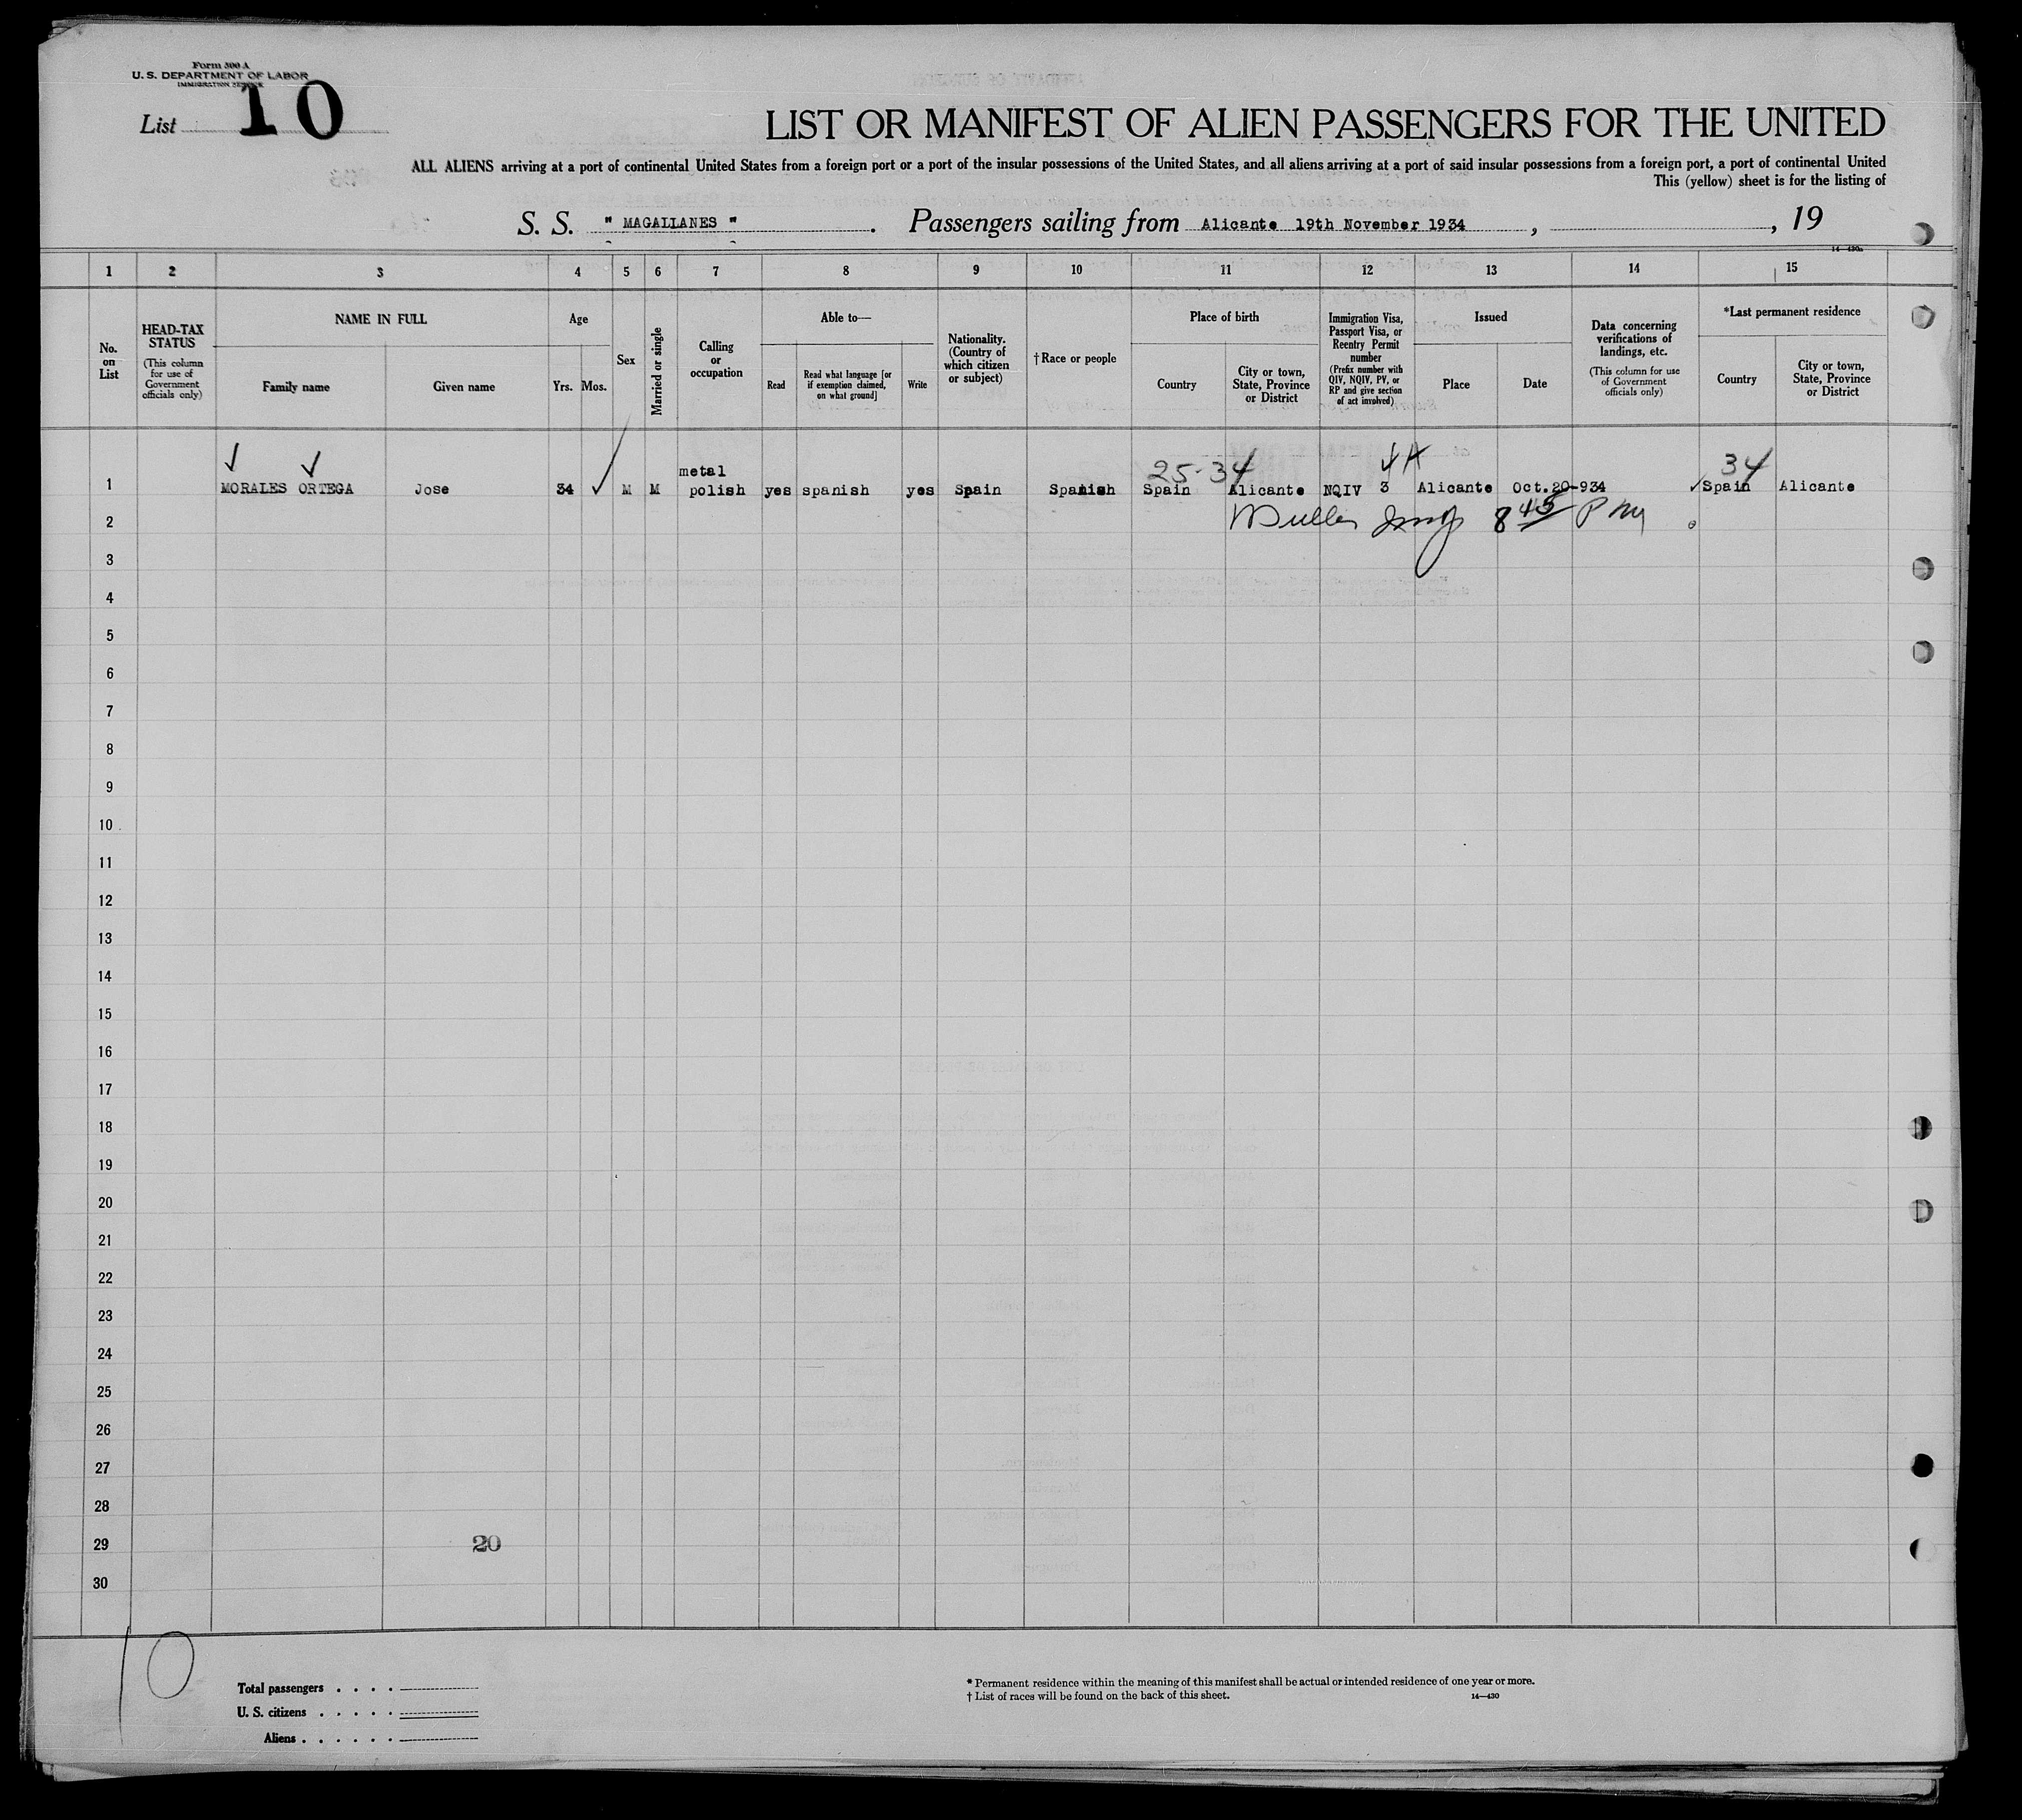 Form 500 A
U. S. DEPARTMENT OF LABOR
IMMIGRATION SERVICE
List 10
LIST OR MANIFEST OF ALIEN PASSENGERS FOR THE UNITED
ALL ALIENS arriving at a port of continental United States from a foreign port or a port of the insular possessions of the United States, and all aliens arriving at a port of said insular possessions from a foreign port, a port of continental United
This (yellow) sheet is for the listing of
S. S. " MAGALLANES " . Passengers sailing from Alicante 19th November 1934 , , 19
14—430a
1 2 3 4 5 6 7 8 9 10 11 12 13 14 15
No. on List
HEAD-TAX STATUS
(This column for use of Government officials only)
NAME IN FULL
Family name
Given name
Age
Yrs. Mos.
Sex
Married or single
Calling or occupation
Able to—
Read
Read what language [or if exemption claimed, on what ground]
Write
Nationality. (Country of which citizen or subject)
† Race or people
Place of birth
Country
City or town, State, Province or District
Immigration Visa, Passport Visa, or Reentry Permit number
(Prefix number with QIV, NQIV, PV, or RP and give section of act involved)
Issued
Place
Date
Data concerning verifications of landings, etc.
(This column for use of Government officials only)
*Last permanent residence
Country
City or town, State, Province or District
25-34 34
metal
1 MORALES ORTEGA Jose 34 M M polish yes spanish yes Spain Spanish Spain Alicante NQIV 3 Alicante Oct.20-934 Spain Alicante
2 8 45 P M
3
4
5
6
7
8
9
10
11
12
13
14
15
16
17
18
19
20
21
22
23
24
25
26
27
28
29 20
30
10
Total passengers . . . .
U. S. citizens . . . . .
Aliens . . . . . .
* Permanent residence within the meaning of this manifest shall be actual or intended residence of one year or more.
† List of races will be found on the back of this sheet. 14—430